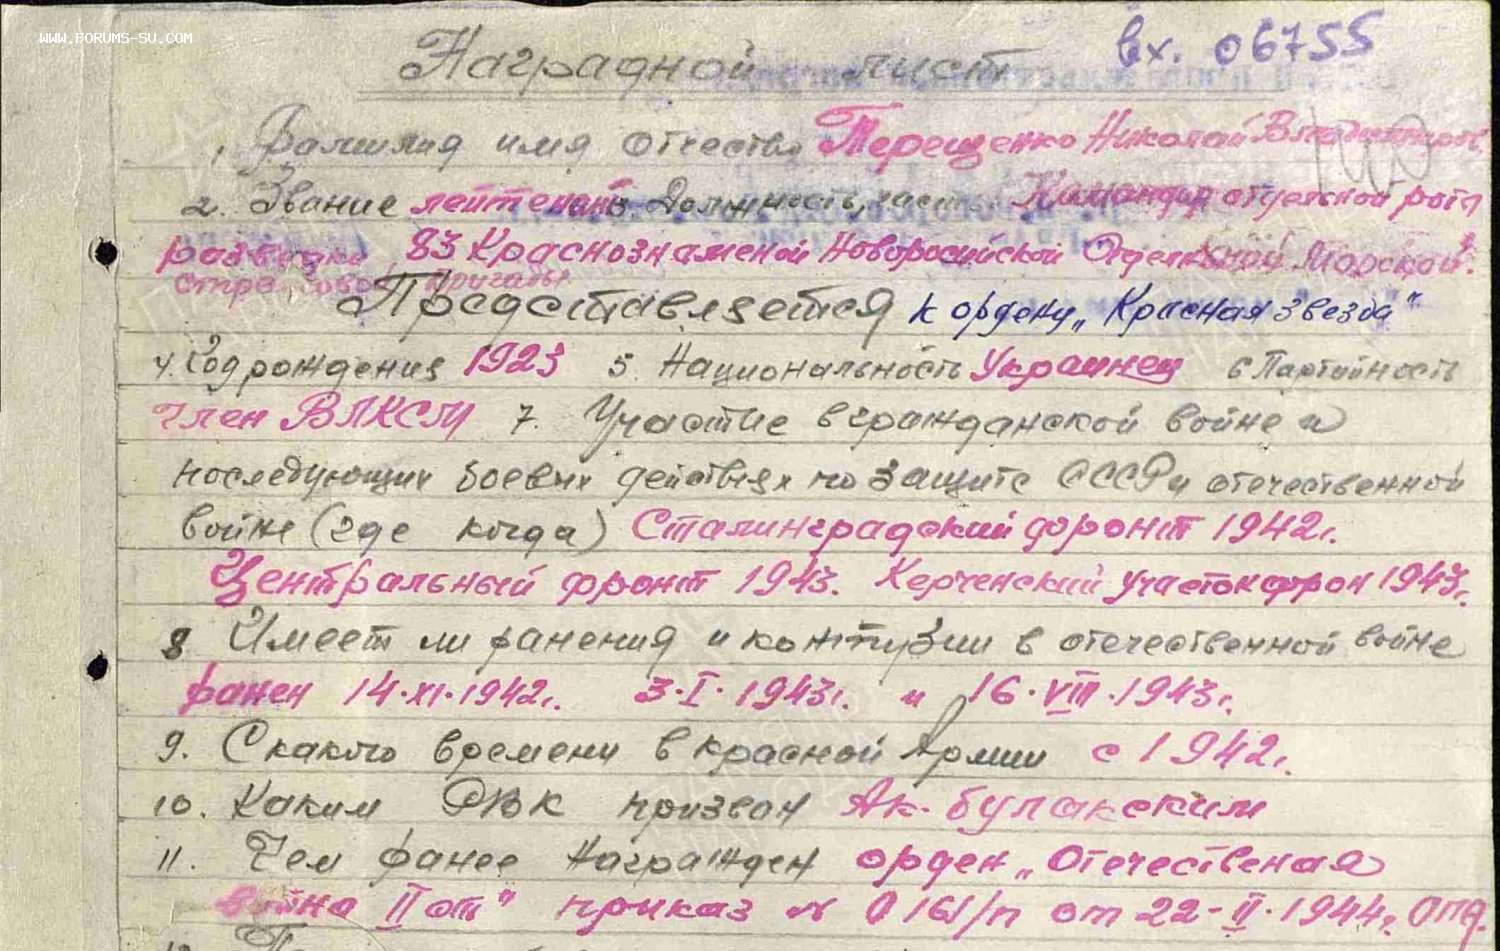 WWW.FORUMS-SU.COM
Наградной лист вх. 06755
1. Фамилия имя отчество Терещенко Николай Владимиров.
2. Звание лейтенант 3. Должность, часть Командир отдельной роты
разведки 83 Краснознаменой Новоросийской Отдельной Морской
стрелковой бригады
Представляется к ордену „Красная звезда"
4. Год рождения 1923 5. Национальность Украинец 6 Партийность
член ВЛКСМ 7. Участие в гражданской войне и
последующих боевых действиях по защите СССР и отечественной
войне (где когда) Сталинградский фронт 1942г.
Центральный фронт 1943. Керченский участок фрон 1943г.
8 Имеет ли ранения и контузии в отечественной войне
ранен 14.XI.1942г. 3.I.1943г. и 16.VIII.1943г.
9. С какого времени в красной Армии с 1942г.
10. Каким РВК призван Ак-булакским
11. Чем ранее награжден орден „Отечественая
война II ст" приказ № 0161/п от 22-II.1944г.